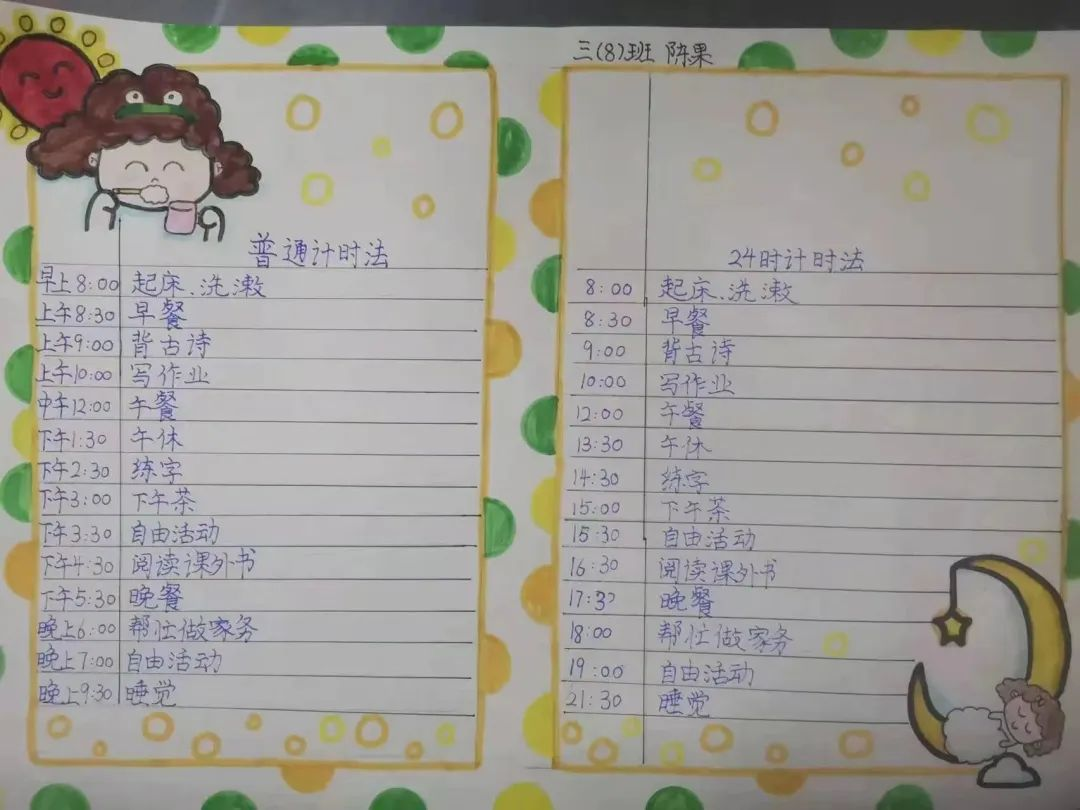 三(8)班 陈果
普通计时法
早上8:00 起床、洗漱
上午8:30 早餐
上午9:00 背古诗
上午10:00 写作业
中午12:00 午餐
下午1:30 午休
下午2:30 练字
下午3:00 下午茶
下午3:30 自由活动
下午4:30 阅读课外书
下午5:30 晚餐
晚上6:00 帮忙做家务
晚上7:00 自由活动
晚上9:30 睡觉
24时计时法
8:00 起床、洗漱
8:30 早餐
9:00 背古诗
10:00 写作业
12:00 午餐
13:30 午休
14:30 练字
15:00 下午茶
15:30 自由活动
16:30 阅读课外书
17:30 晚餐
18:00 帮忙做家务
19:00 自由活动
21:30 睡觉